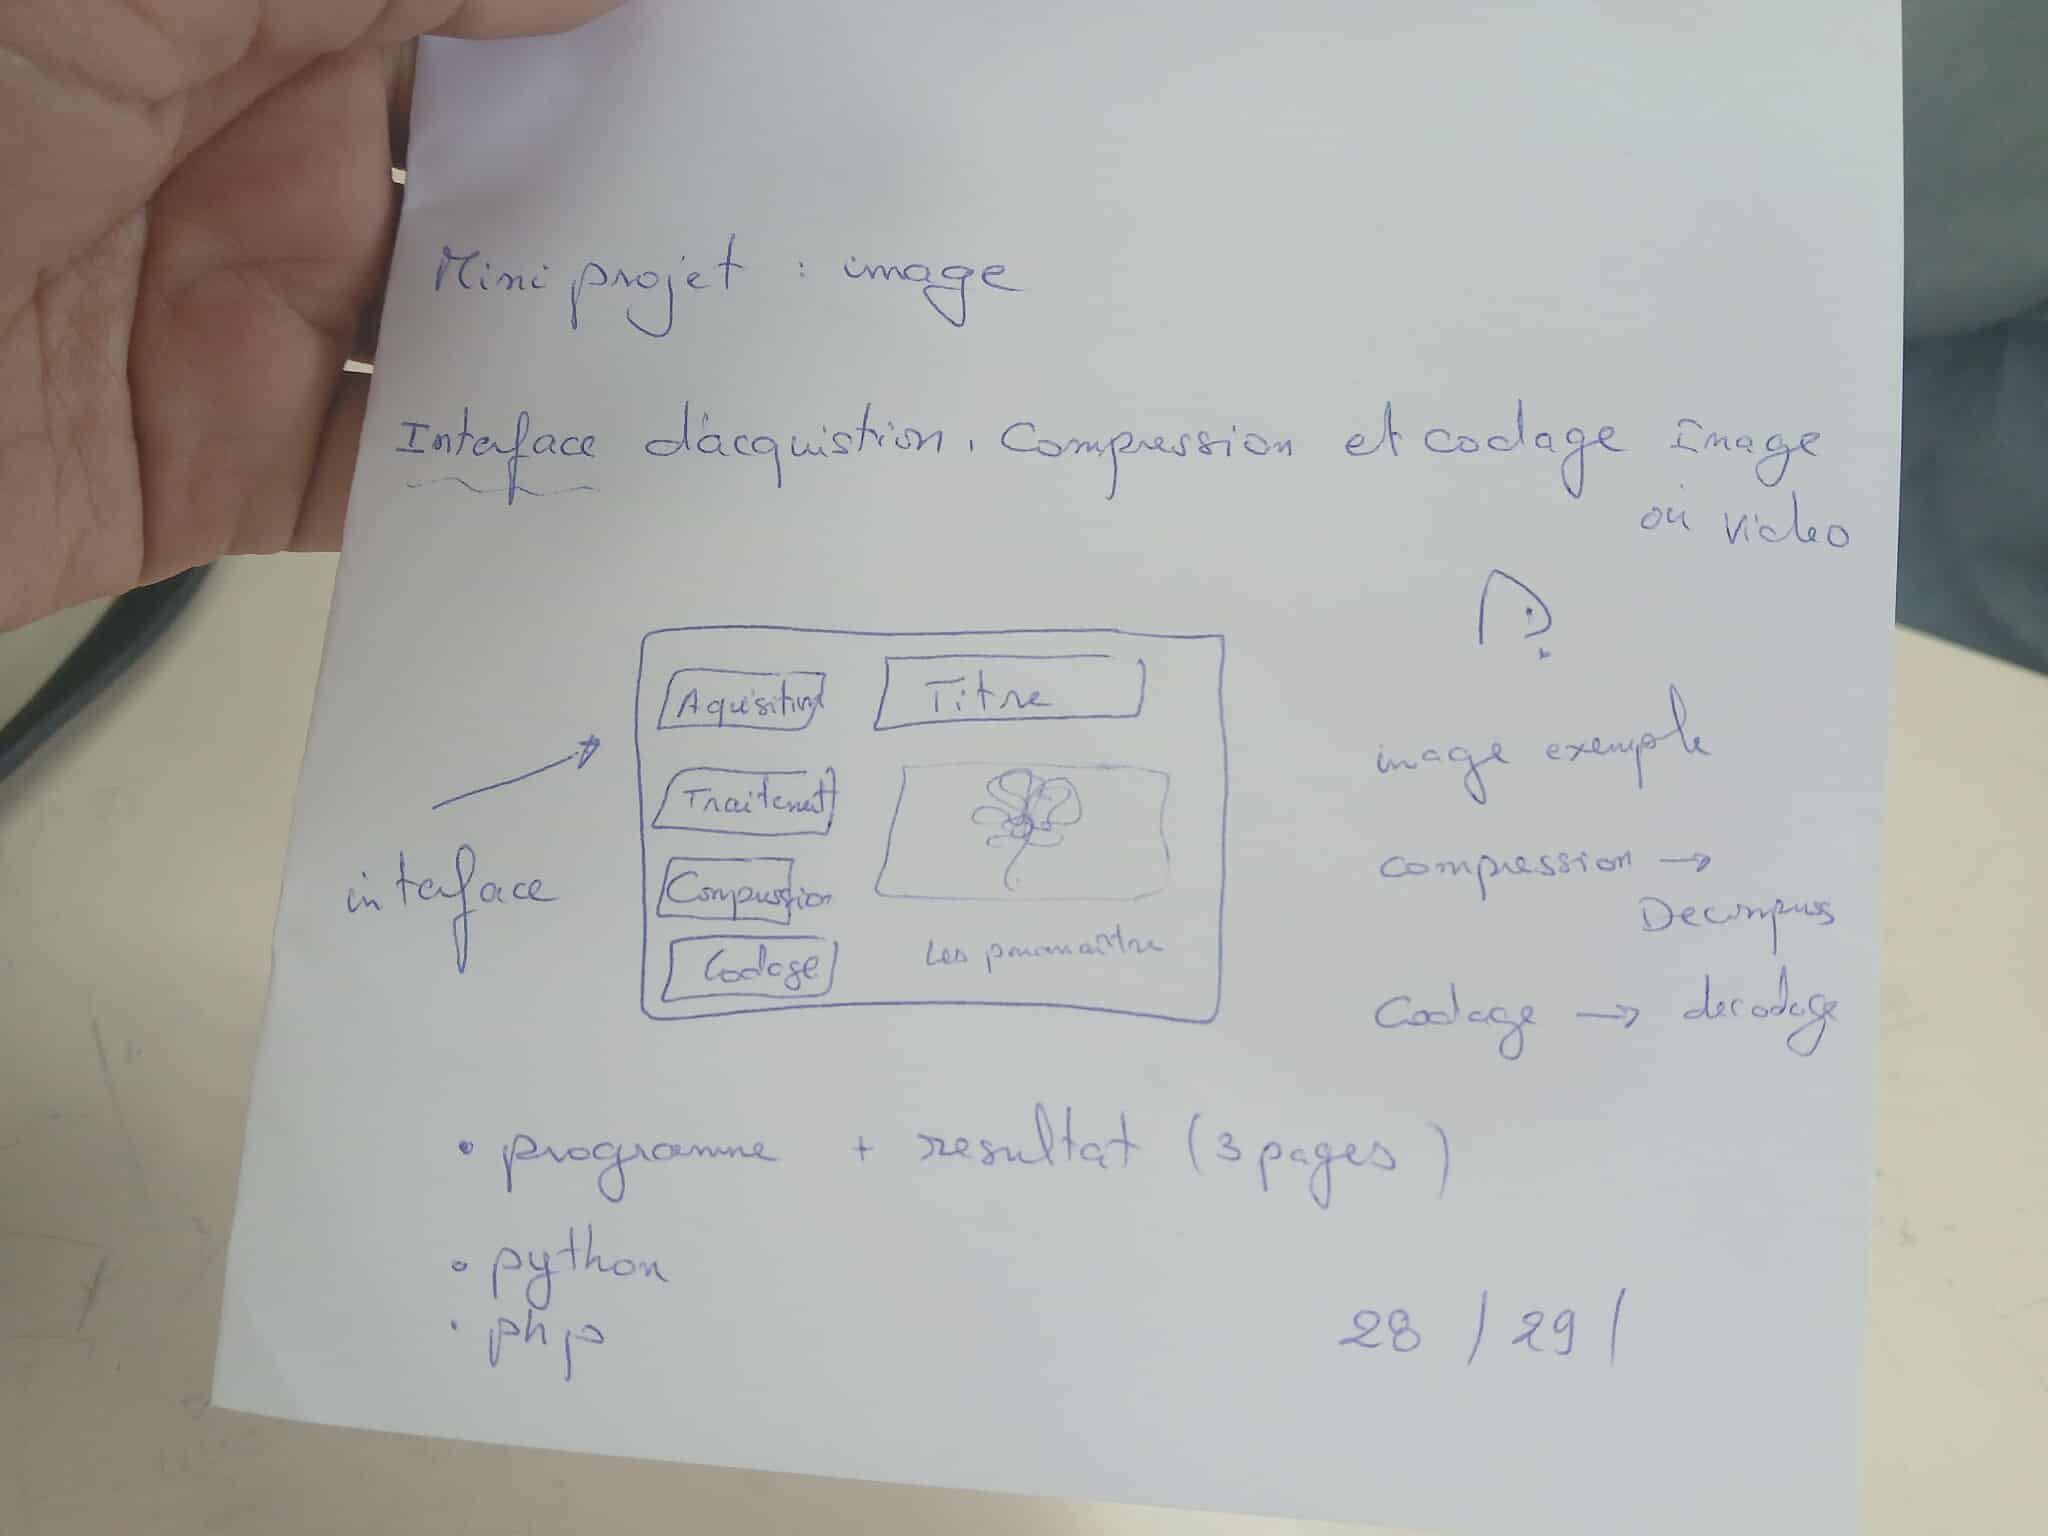 Mini projet : image
Interface d'acquistion, Compression et codage Image
ou video
Aquisition
Titre
Traitement
Compression
Codage
Les paramaître
interface
image exemple
compression →
Decompress
Codage → decodage
• programme + resultat (3 pages)
• python
• php
28 / 29 /